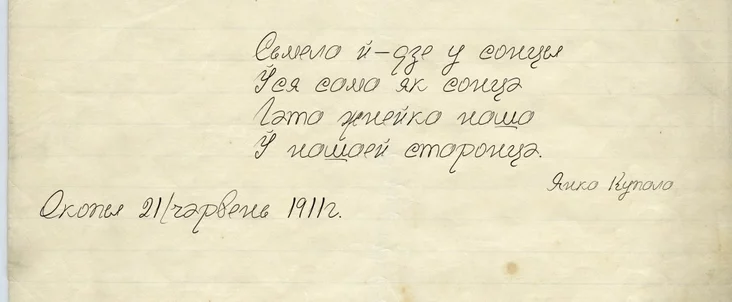 Сьмела й-дзе у сонцы
Ўся сама як сонцэ
Гэта жнейка наша
Ў нашаей старонцэ.
Янка Купала
Окопы 21/чэрвень 1911г.